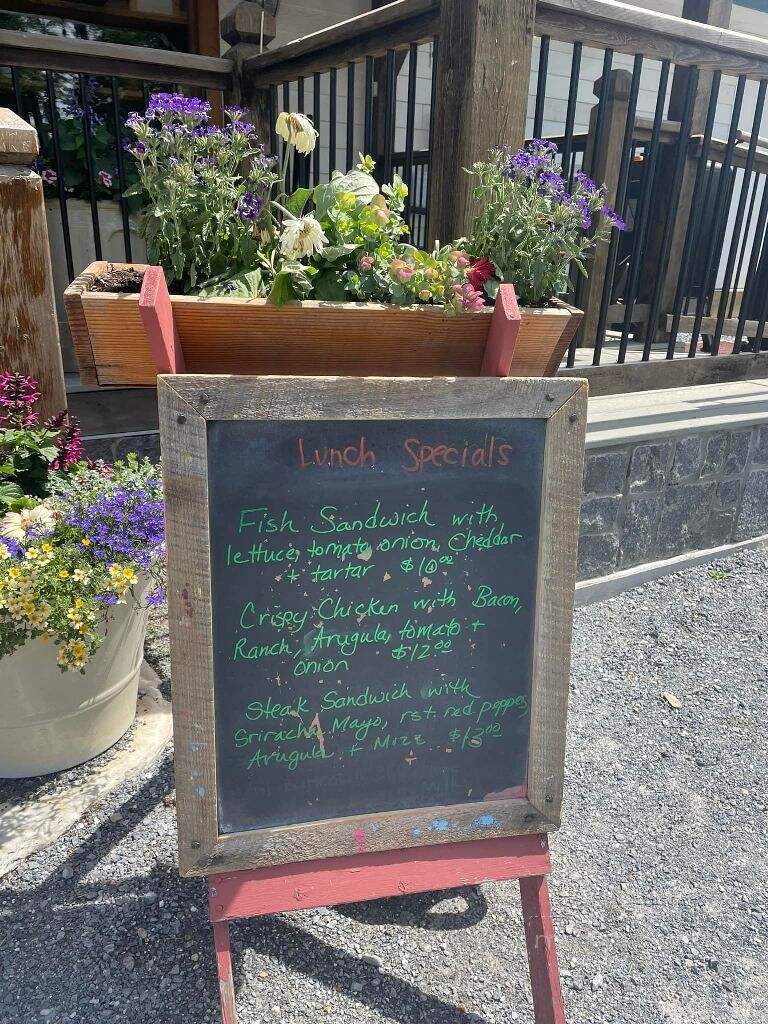 Lunch Specials
Fish Sandwich with
lettuce, tomato, onion, Cheddar
+ tartar $10.00
Crispy Chicken with Bacon,
Ranch, Arugula, tomato +
onion $12.00
Steak Sandwich with
Sriracha Mayo, rst. red peppers,
Arugula + Mozz $13.00